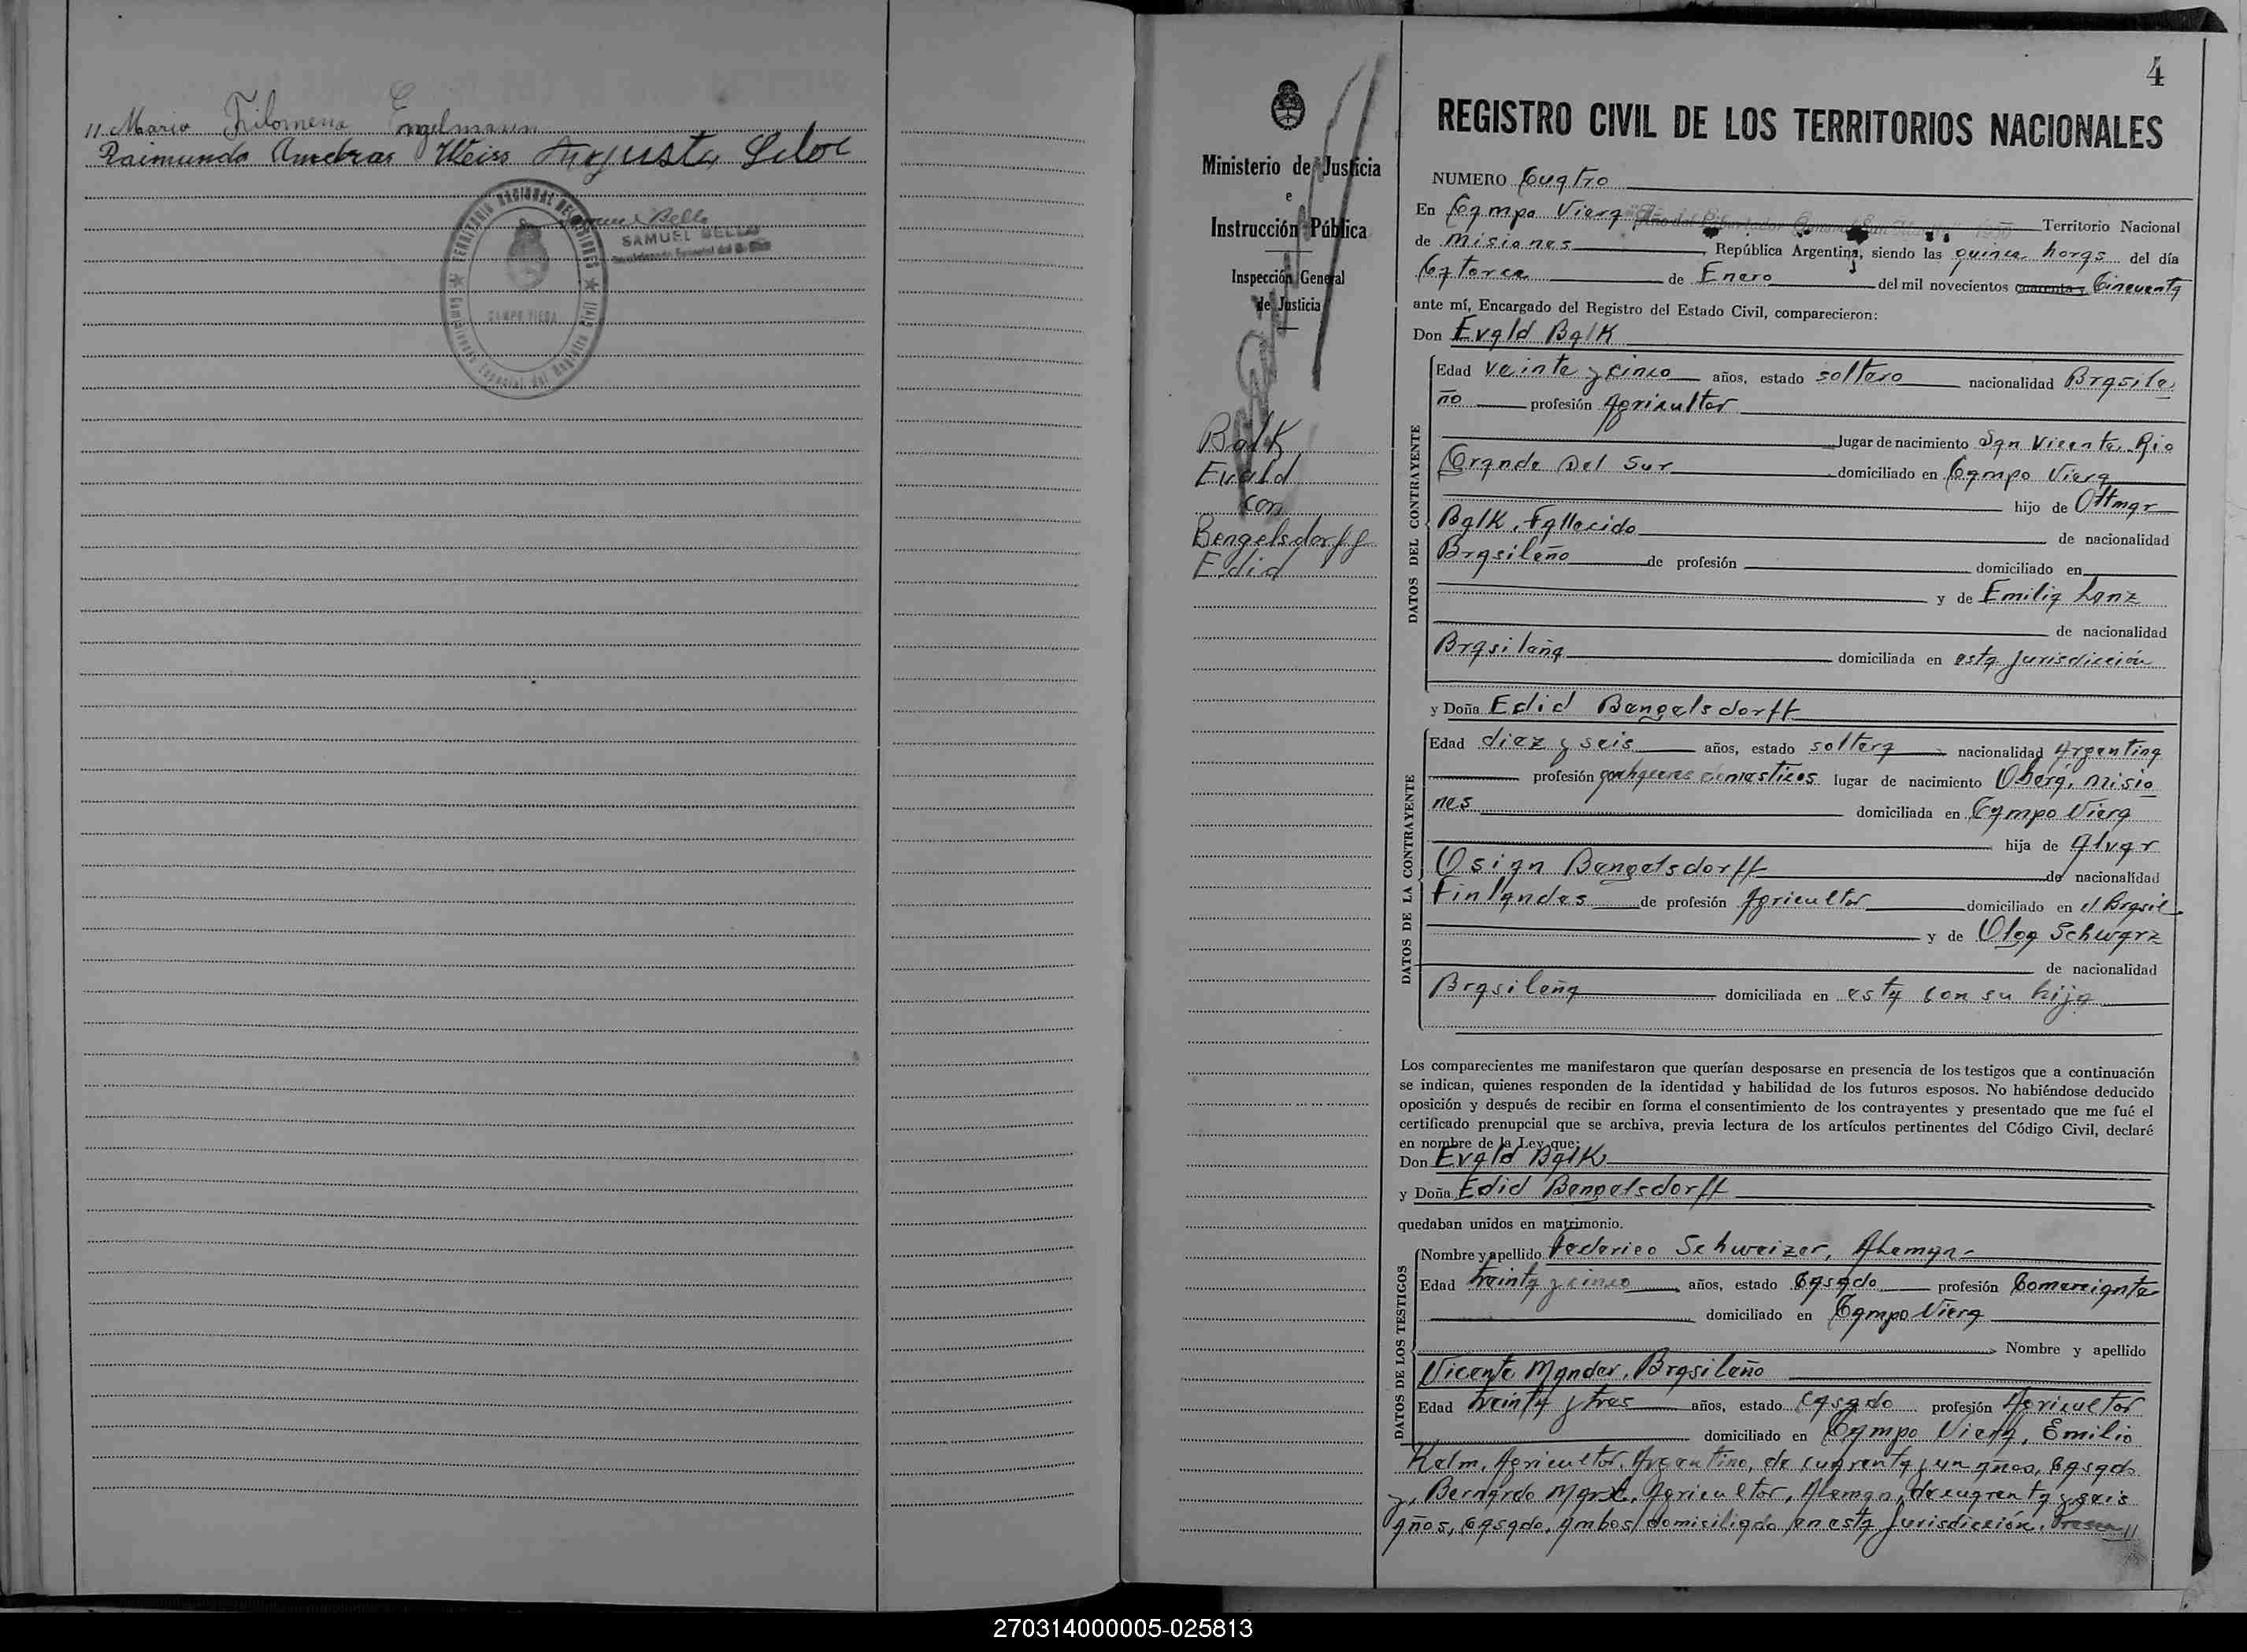 11 Maria Filomena Engelmann
Raimundo Andreas Weiss Augusta
TERRITORIO NACIONAL DE MISIONES
Samuel Bello
SAMUEL BELLO
CAMPO VIERA
4
REGISTRO CIVIL DE LOS TERRITORIOS NACIONALES
Ministerio de Justicia
e
Instrucción Pública
Inspección General
de Justicia
Balk
Evald
con
Bengelsdorff
Edid
NUMERO Cuatro
En Campo Viera "Año del Libertador General San Martín 1950" Territorio Nacional
de Misiones República Argentina, siendo las quince horas del día
Catorce de Enero del mil novecientos cuarenta y Cincuenta
ante mí, Encargado del Registro del Estado Civil, comparecieron:
Don Evald Balk
DATOS DEL CONTRAYENTE
Edad veinte y cinco años, estado soltero nacionalidad Brasile
ño profesión Agricultor
lugar de nacimiento San Vicente, Rio
Grande Del Sur domiciliado en Campo Viera
hijo de Ottmar
Balk, Fallecido de nacionalidad
Brasileño de profesión domiciliado en
y de Emilia Lenz
de nacionalidad
Brasileña domiciliada en esta Jurisdicción
y Doña Edid Bengelsdorff
DATOS DE LA CONTRAYENTE
Edad diez y seis años, estado soltera nacionalidad Argentina
profesión quehaceres domesticos lugar de nacimiento Oberá, Misio
nes domiciliada en Campo Viera
hija de Alvar
Osian Bengelsdorff de nacionalidad
Finlandes de profesión Agricultor domiciliado en el Brasil
y de Olga Schwarz
de nacionalidad
Brasileña domiciliada en esta con su hija
Los comparecientes me manifestaron que querían desposarse en presencia de los testigos que a continuación
se indican, quienes responden de la identidad y habilidad de los futuros esposos. No habiéndose deducido
oposición y después de recibir en forma el consentimiento de los contrayentes y presentado que me fué el
certificado prenupcial que se archiva, previa lectura de los artículos pertinentes del Código Civil, declaré
en nombre de la Ley que:
Don Evald Balk
y Doña Edid Bengelsdorff
quedaban unidos en matrimonio.
DATOS DE LOS TESTIGOS
Nombre y apellido Federico Schweizer, Aleman
Edad treinta y cinco años, estado Casado profesión Comerciante
domiciliado en Campo Viera
Nombre y apellido
Vicente Mander, Brasileño
Edad treinta y tres años, estado casado profesión Agricultor
domiciliado en Campo Viera, Emilio
Kelm, Agricultor, Argentino, de cuarenta y un años, Casado
y, Bernardo Marx, Agricultor, Aleman, de cuarenta y seis
años, casado, ambos domiciliado en esta Jurisdicción. Presen//
270314000005-025813